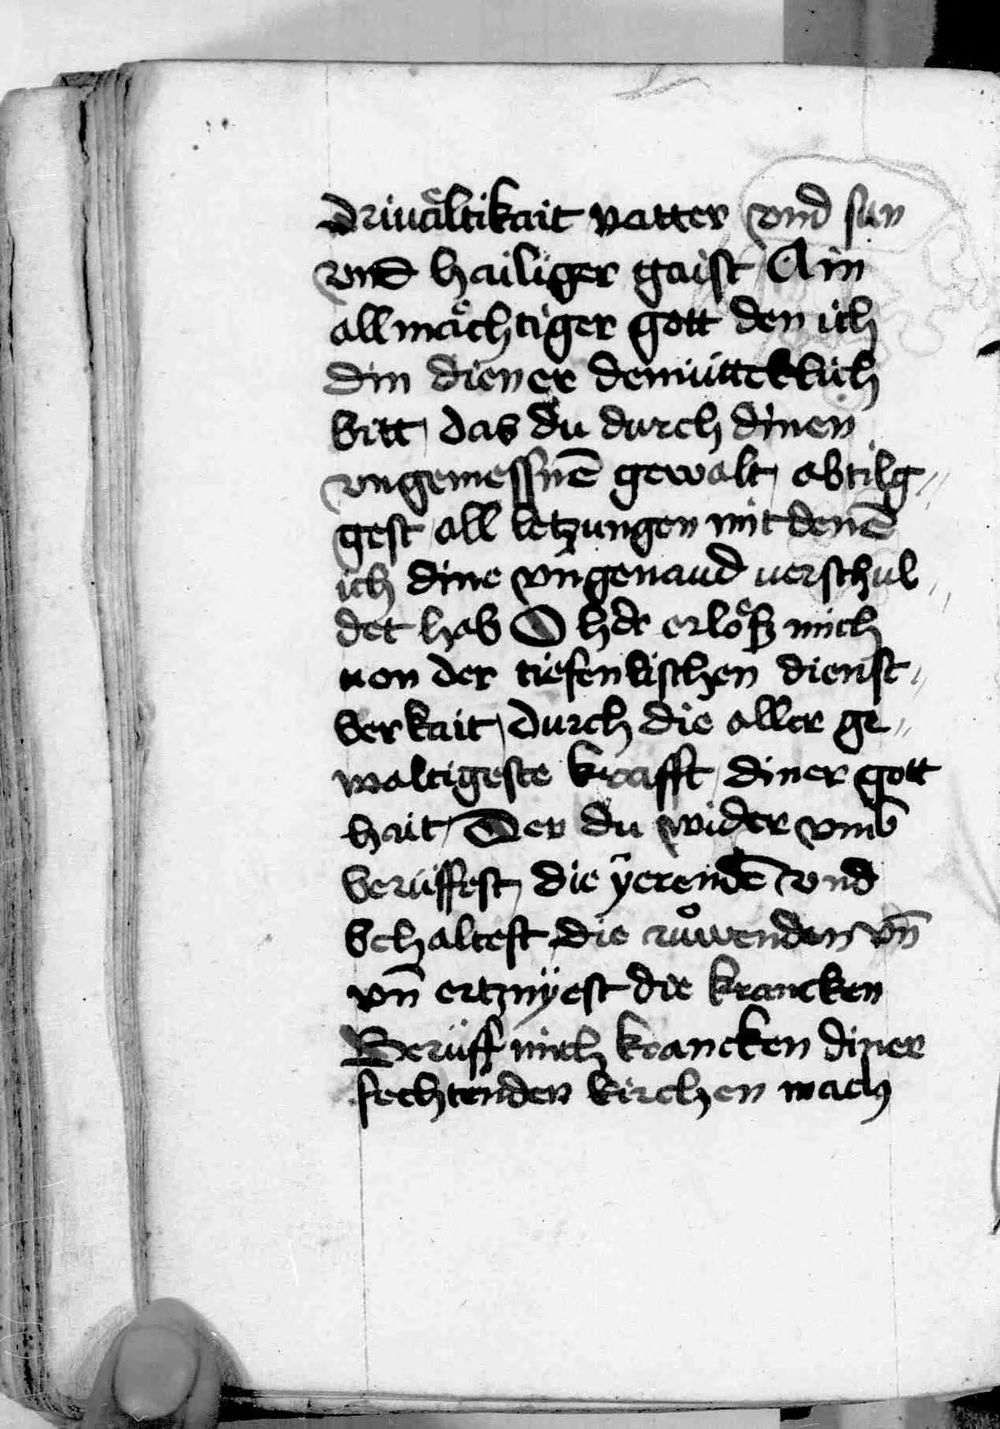 Driuaͤltikait vatter vnd sun
vnd hailiger gaist Ain
allmaͤchtiger gott den ich
din diener demüttcklich
bitt das du durch dinen
vngemessnē gewalt abtilg〃
gest all letzungen mit denē
ich dine vngenaud uerschul〃
det hab O hˀr erloͤß mich
uon der tiefenlischen dienst〃
berkait durch die aller ge〃
waltigeste krafft diner gott
hait Der du wider vmb
berüffest die ÿerendē vnd
behaltest die ruͦwenden vn̄
vn̄ ertznÿest die krancken
Berüff mich krancken diner
fechtenden kirchen mach